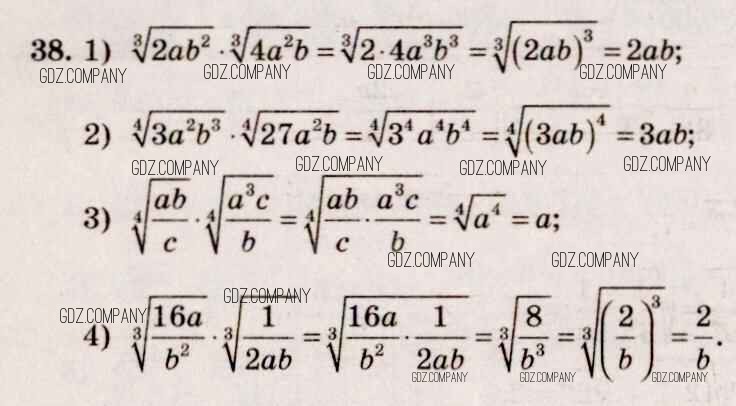 38. 1) ∛(2ab²) · ∛(4a²b) = ∛(2·4a³b³) = ∛((2ab)³) = 2ab;
GDZ.COMPANY GDZ.COMPANY GDZ.COMPANY GDZ.COMPANY
2) ∜(3a²b³) · ∜(27a²b) = ∜(3⁴a⁴b⁴) = ∜((3ab)⁴) = 3ab;
GDZ.COMPANY GDZ.COMPANY GDZ.COMPANY GDZ.COMPANY
3) ∜(ab/c) · ∜(a³c/b) = ∜(ab/c · a³c/b) = ∜(a⁴) = a;
GDZ.COMPANY GDZ.COMPANY
GDZ.COMPANY GDZ.COMPANY
4) ∛(16a/b²) · ∛(1/2ab) = ∛(16a/b² · 1/2ab) = ∛(8/b³) = ∛((2/b)³) = 2/b.
GDZ.COMPANY GDZ.COMPANY GDZ.COMPANY